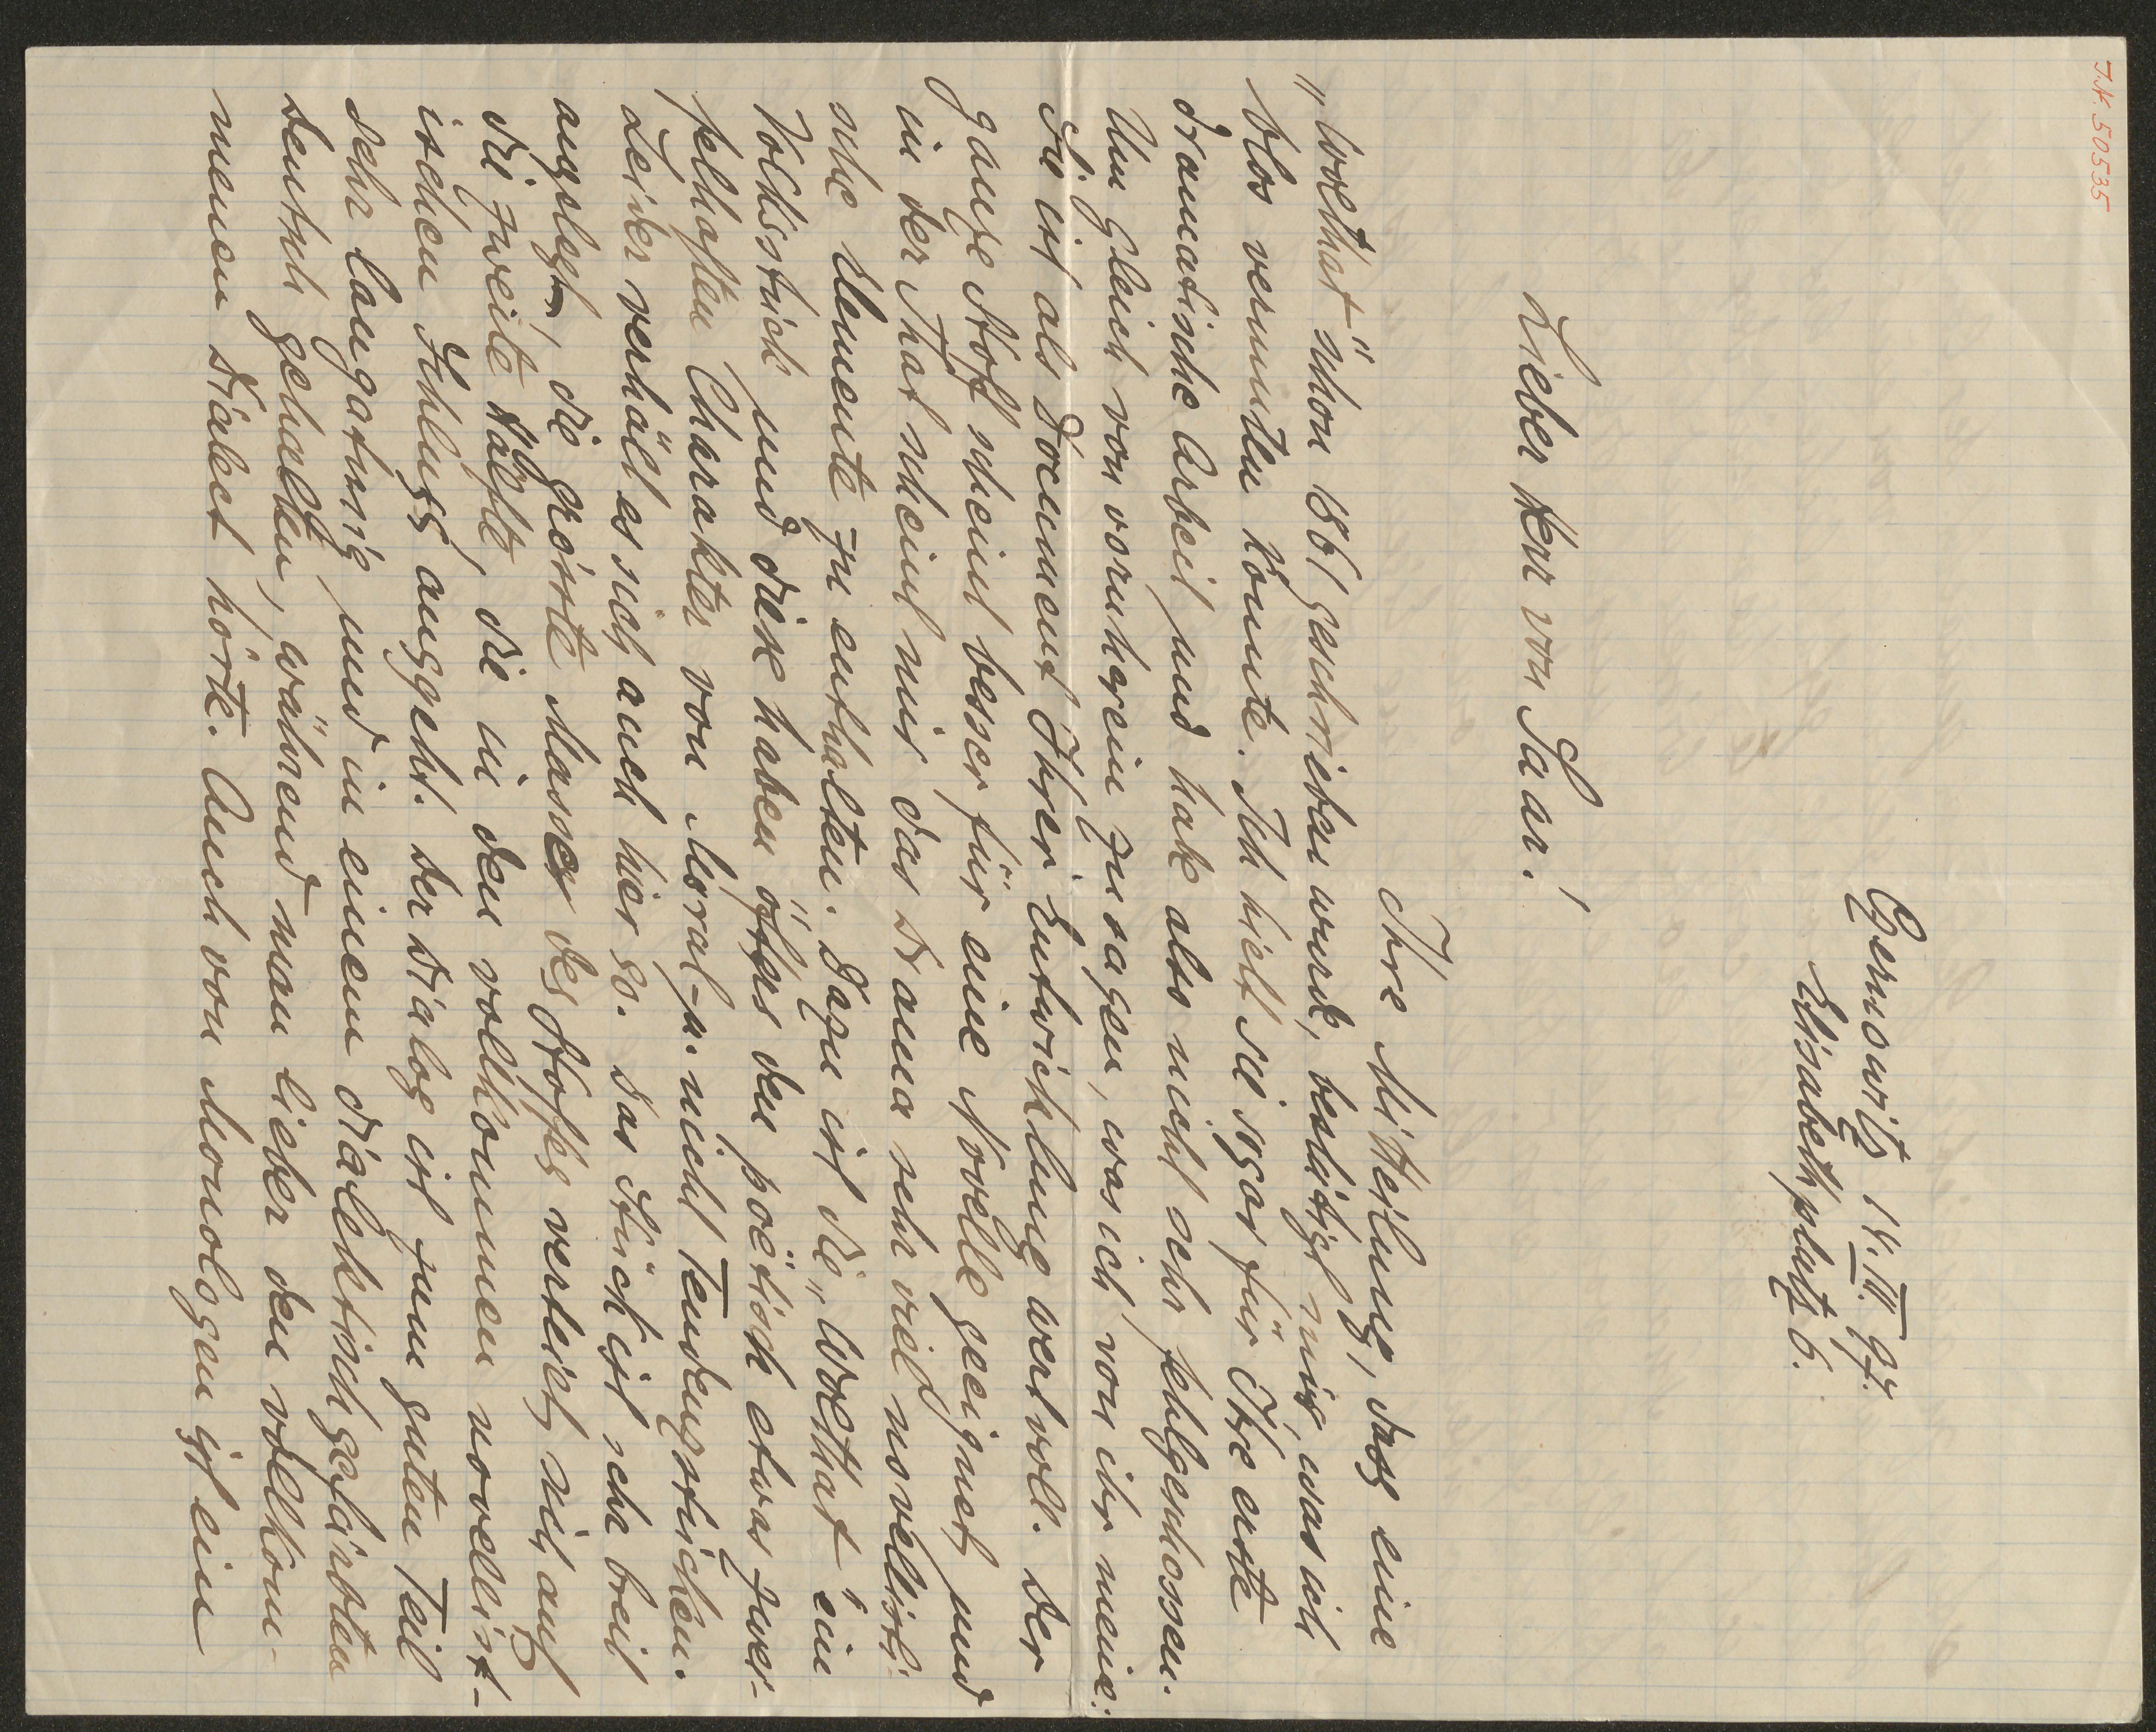 J.N. 50535
Czernowitz 14. III. 97.
Elisabethplatz 6.
Lieber Herr von Saar!
Ihre Mitteilung, dass eine
„Wolthat“ schon 1861 geschrieben wurde, bestätigt mir, was ich
blos vermuten konnte. Ich hielt sie sogar für Ihre erste
dramatische Arbeit und habe also nicht sehr fehlgeschossen.
Um gleich von vornherein zu sagen, was ich von ihr meine:
Sie ist als Document Ihrer Entwicklung wertvoll. Der
ganze Stoff scheint besser für eine Novelle geeignet und
in der That scheint mir das Drama sehr viel novellisti-
sche Elemente zu enthalten. Dazu ist die „Wolthat“ ein
Volksstück und diese haben öfters den poëtisch etwas zwei-
felhaften Charakter von Moral- u. nicht Tendenzstücken.
Leider verhält es sich auch hier so. Das Stück ist sehr breit
angelegt, die grösste Masse des Stoffes verteilt sich auf
die zweite Hälfte, die in den vollkommen novellist-
ischen Schluss ausgeht. Der Dialog ist zum guten Teil
sehr langatmig und in einem dialektisch gefärbten
Deutsch gehalten, während man lieber den vollkom-
menen Dialect hörte. Auch von Monologen ist ein